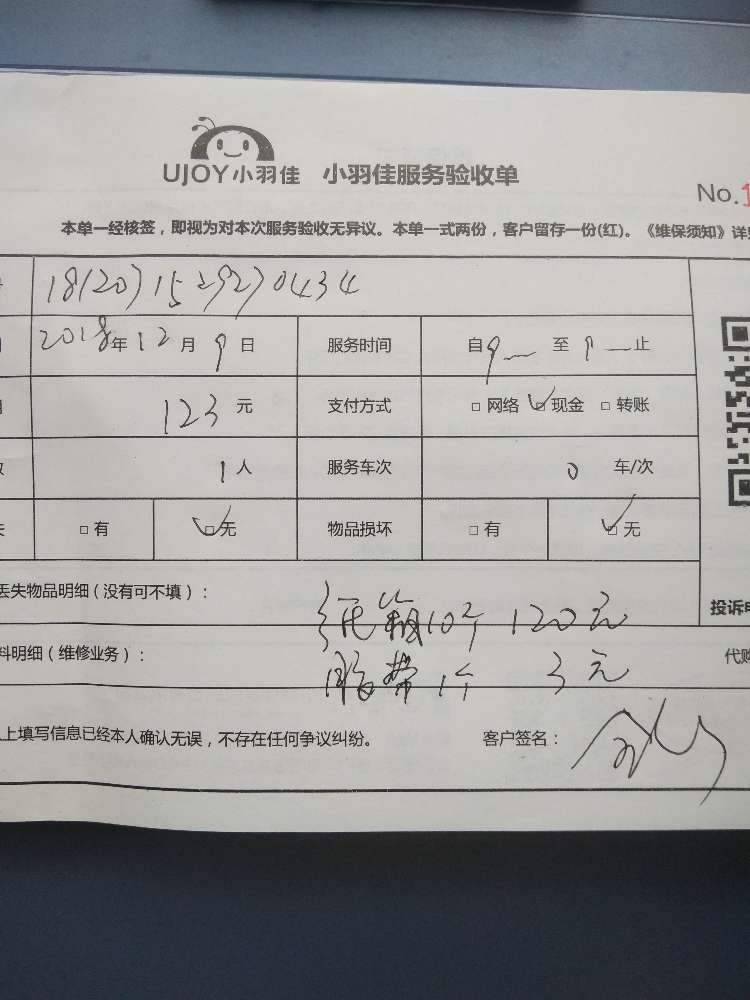 UJOY小羽佳 小羽佳服务验收单
No.1
本单一经核签，即视为对本次服务验收无异议。本单一式两份，客户留存一份(红)。《维保须知》详
18(20)1529270434
2018年12月9日 服务时间 自9 至9 止
123元 支付方式 □网络 ☑现金 □转账
1人 服务车次 0 车/次
□有 ☑无 物品损坏 □有 ☑无
丢失物品明细（没有可不填）： 纸箱10个 120元
投诉电
料明细（维修业务）： 胶带1个 3元
代购
上填写信息已经本人确认无误，不存在任何争议纠纷。 客户签名：